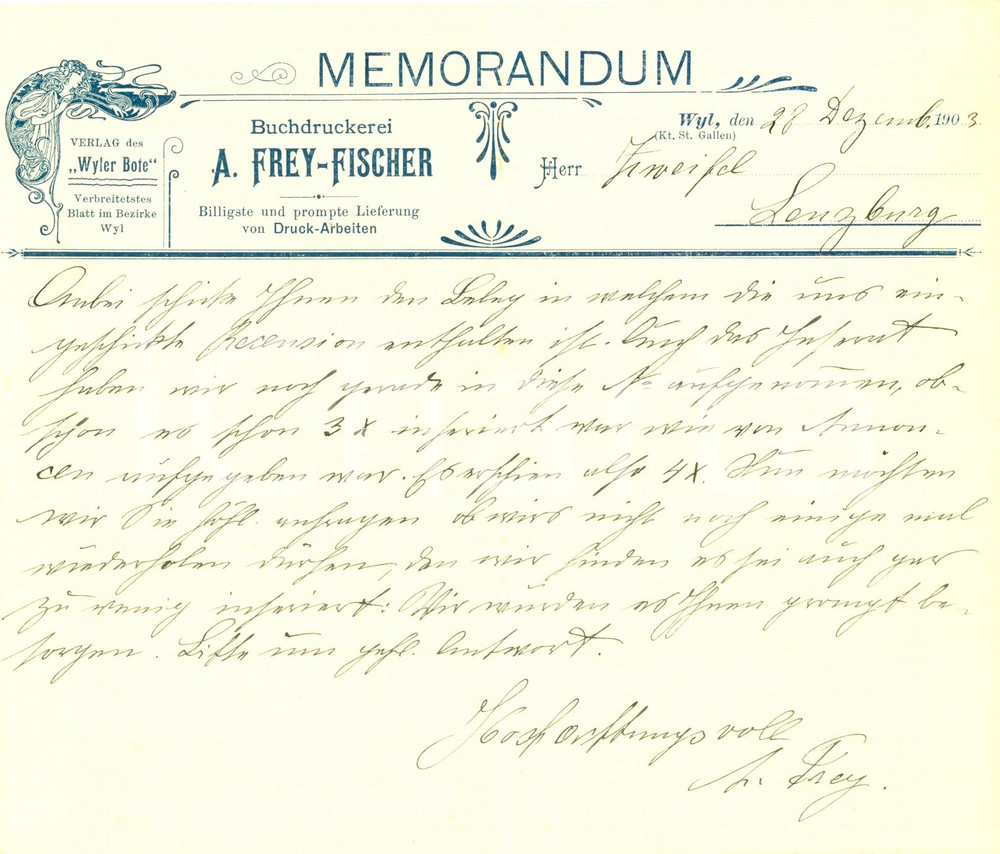 MEMORANDUM
VERLAG des
„Wyler Bote“
Verbreitetstes
Blatt im Bezirke
Wyl
Buchdruckerei
A. FREY-FISCHER
Billigste und prompte Lieferung
von Druck-Arbeiten
Wyl, den 28 Dezemb. 1903.
(Kt. St. Gallen)
Herr Zweifel
Lenzburg
Anbei schicke Ihnen den Beleg in welchem die uns ein-
geschickte Recension enthalten ist. Auch das Inserat
haben wir noch gerade in diese No aufgenommen, ob-
schon es schon 3 x inseriert war wie von Annon-
cen aufgegeben war. Es erschien also 4x. Nun möchten
wir Sie höfl. anfragen ob wirs nicht noch einige mal
wiederholen dürfen, den wir finden es sei auch gar
zu wenig inseriert: Wir würden es Ihnen prompt be-
sorgen. Bitte um gefl. Antwort.
Hochachtungsvoll
A. Frey.